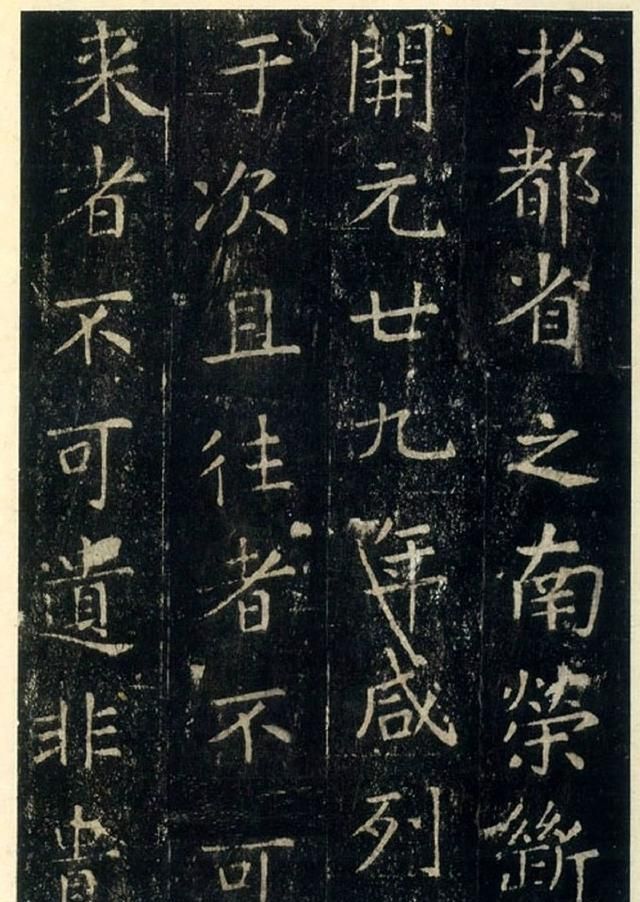 於都省之南榮斷
開元廿九年咸列
于次且往者不可
来者不可遺非貴